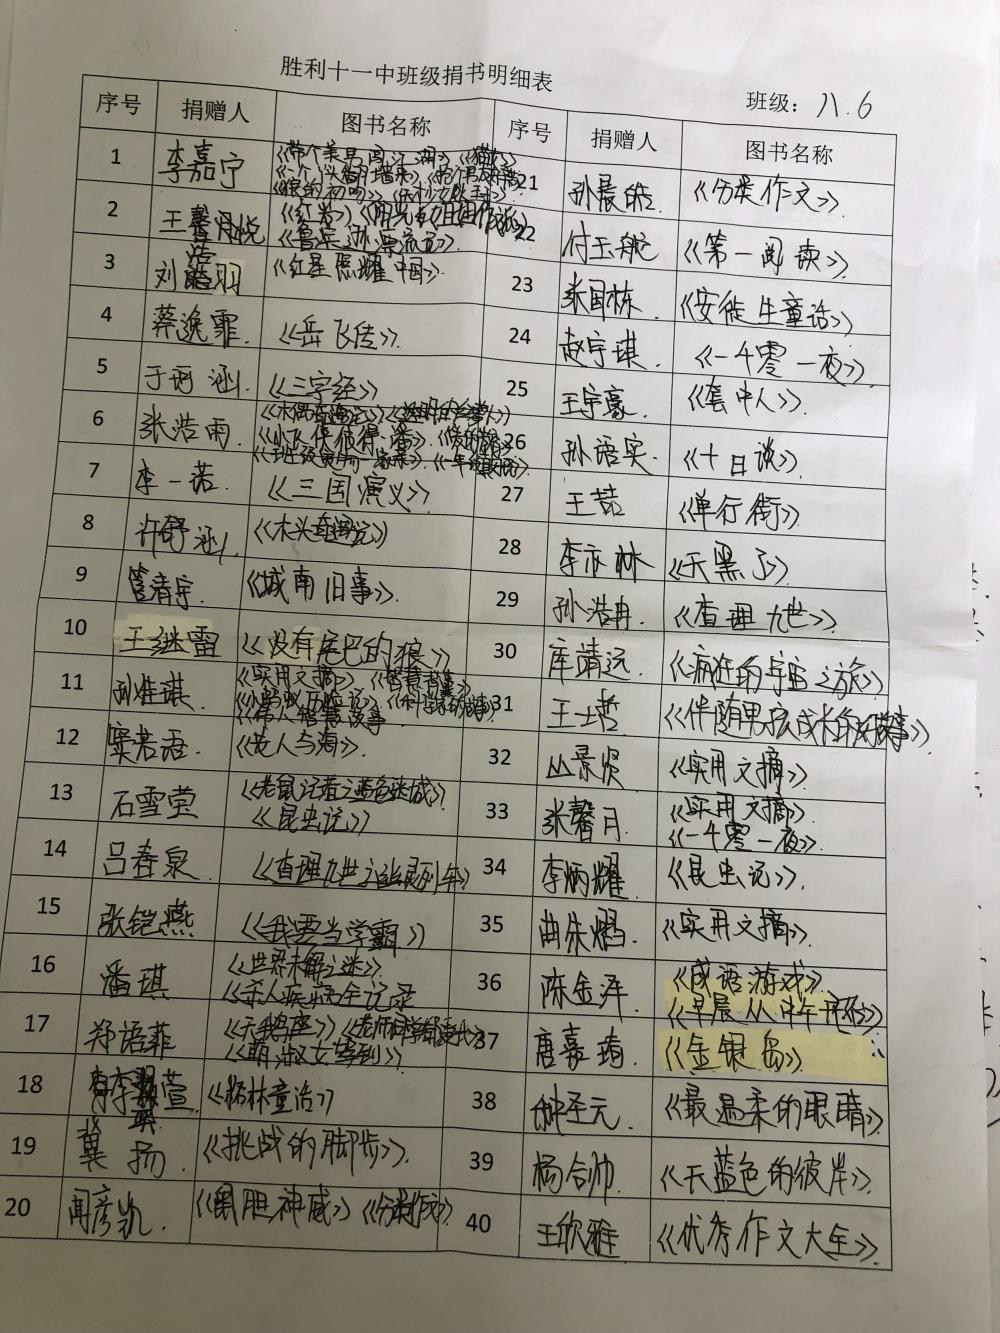 胜利十一中班级捐书明细表
班级：八.6
序号 捐赠人 图书名称 序号 捐赠人 图书名称
1 李嘉宁 21 孙晨皓 《分类作文》
2 王馨月悦 《红岩》 《鲁滨逊漂流记》 22 付玉航 《第一阅读》
3 刘皓羽 浩 《红星照耀中国》 23 张国栋 《安徒生童话》
4 蔡逸霏 《岳飞传》 24 赵宇琪 《一千零一夜》
5 于诃涵 《三字经》 25 王宇豪 《套中人》
6 张浩雨 《木偶奇遇记》
《小飞侠彼得·潘》 26 孙语实 《十日谈》
7 李一诺 《三国演义》 27 王喆 《单行街》
8 许舒涵 《木头奇遇记》 28 李亦林 《天黑了》
9 管春宇 《城南旧事》 29 孙浩冉 《查理九世》
10 王继雷 《没有尾巴的狼》 30 库靖远 《疯狂的宇宙之旅》
11 孙佳琪 《实用文摘》 《智慧背囊》
《小蚂蚁历险记》 《科学家的故事》
《伟人智慧故事 31 王士哲 《伴随男孩成长的好故事》
12 窦若语 《老人与海》 32 丛景煜 《实用文摘》
13 石雪莹 《老鼠记者之蓝色迷城》
《昆虫记》 33 张馨月 《实用文摘》
《一千零一夜》
14 吕春泉 《查理九世 34 李炳耀 《昆虫记》
15 张铠燕 《我要当学霸》 35 曲朱熠 《实用文摘》
16 潘琪 《世界未解之谜》
《杀人疾病全记录 36 陈金泽 《成语游戏》
《早晨从中午开始》
17 郑语菲 《天鹅座》
《萌淑女 37 唐嘉瑜 《金银岛》
18 李 萱 《格林童话》 38 钟圣元 《最温柔的眼睛》
19 冀扬 《挑战的脚步》 39 杨合帅 《天蓝色的彼岸》
20 闻彦凯 《鼠胆神威》 《分类作文》 40 王欣雅 《优秀作文大全》